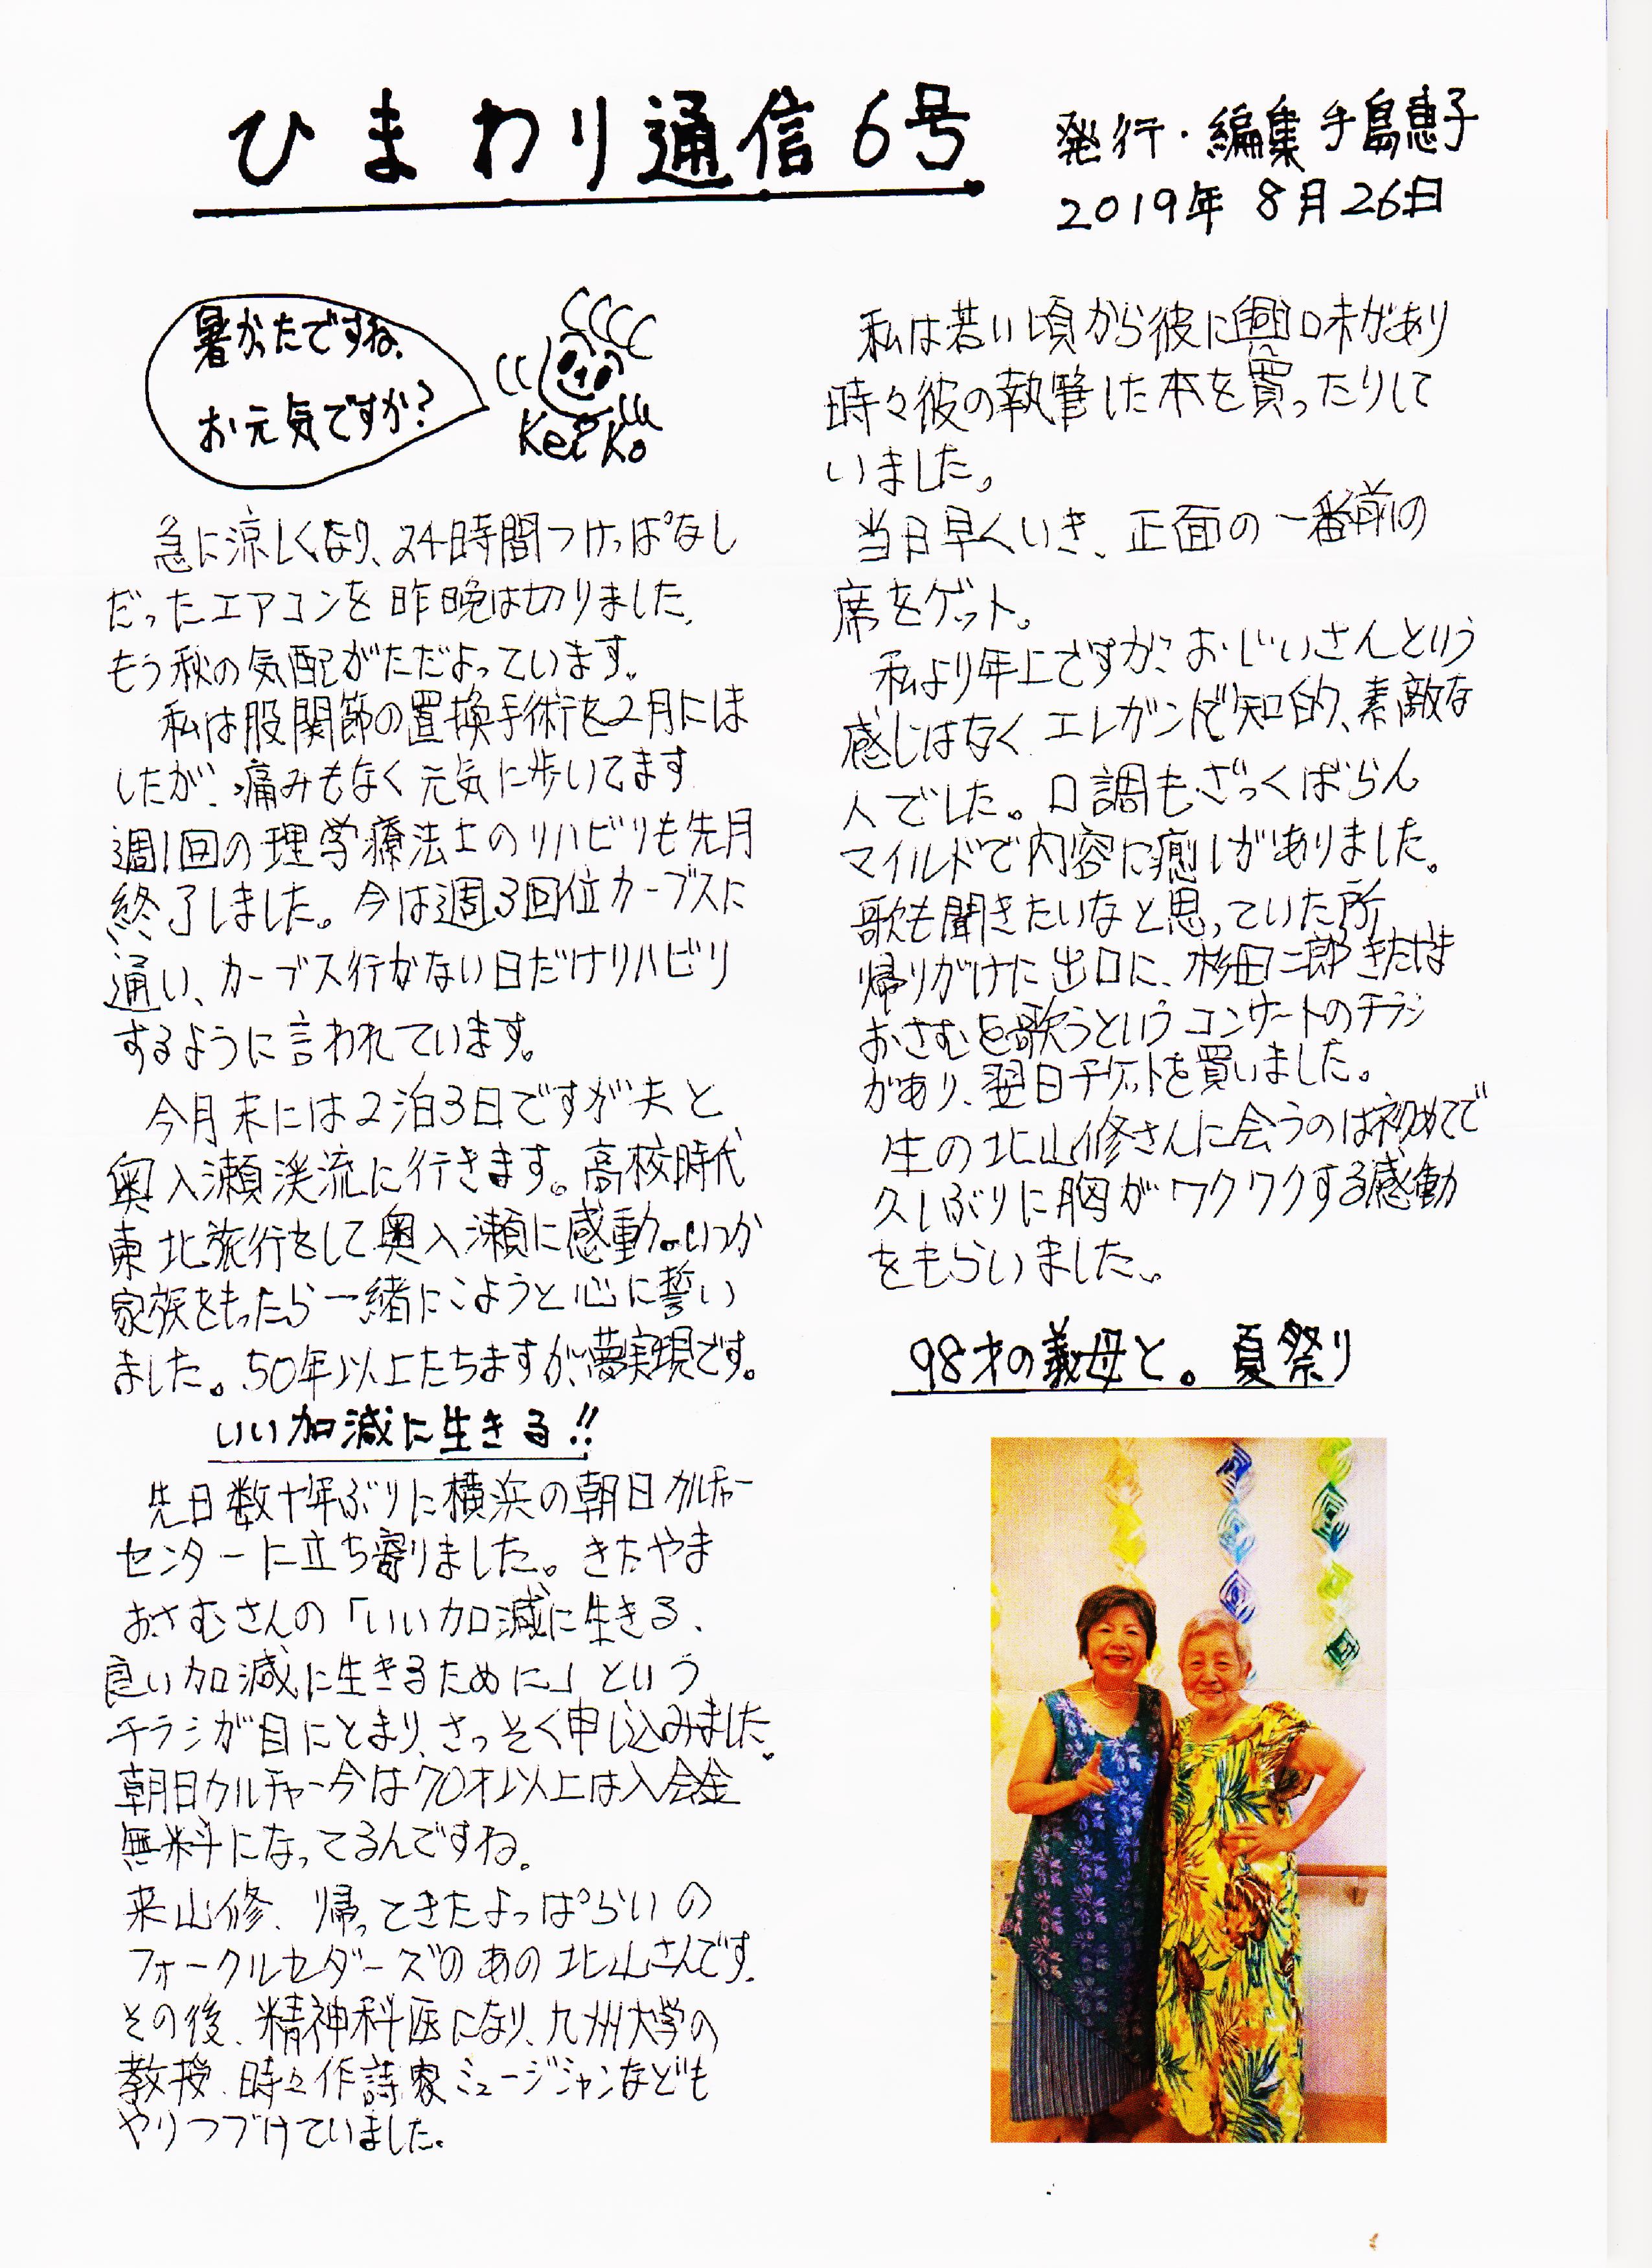 ひまわり通信6号
発行・編集 手島惠子
2019年 8月26日
暑かったですね、
お元気ですか?
Keiko
急に涼しくなり、24時間つけっぱなし
だったエアコンを昨晩は切りました。
もう秋の気配がただよっています。
私は股関節の置換手術を2月には
したが、痛みもなく元気に歩いてます
週1回の理学療法士のリハビリも先月
終了しました。今は週3回位カーブスに
通い、カーブス行かない日だけリハビリ
するように言われています。
今月末には2泊3日ですが夫と、
奥入瀬渓流に行きます。高校時代
東北旅行をして奥入瀬に感動。いつか
家族をもったら一緒にこようと心に誓い
ました。50年以上たちますが、夢実現です。
いい加減に生きる!!
先日数十年ぶりに横浜の朝日カルチャー
センターに立ち寄りました。きたやま
おさむさんの「いい加減に生きる、
良い加減に生きるために」という
チラシが目にとまり、さっそく申し込みました。
朝日カルチャー今は70才以上は入会金
無料になってるんですね。
来山修、帰ってきたよっぱらいの
フォークルセダーズのあの北山さんです。
その後、精神科医になり、九州大学の
教授、時々作詩家ミュージシャンなども
やりつづけていました。
私は若い頃から彼に興味があり
時々彼の執筆した本を買ったりして
いました。
当日早くいき、正面の一番前の
席をゲット。
私より年上ですが、おじいさんという
感じはなく、エレガントで知的、素敵な
人でした。口調もざっくばらん
マイルドで内容に癒しがありました。
歌も聞きたいなと思っていた所
帰りがけに出口に、杉田二郎きたやま
おさむを歌うというコンサートのチラシ
があり、翌日チケットを買いました。
生の北山修さんに会うのは初めてで
久しぶりに胸がワクワクする感動
をもらいました。
98才の義母と。夏祭り